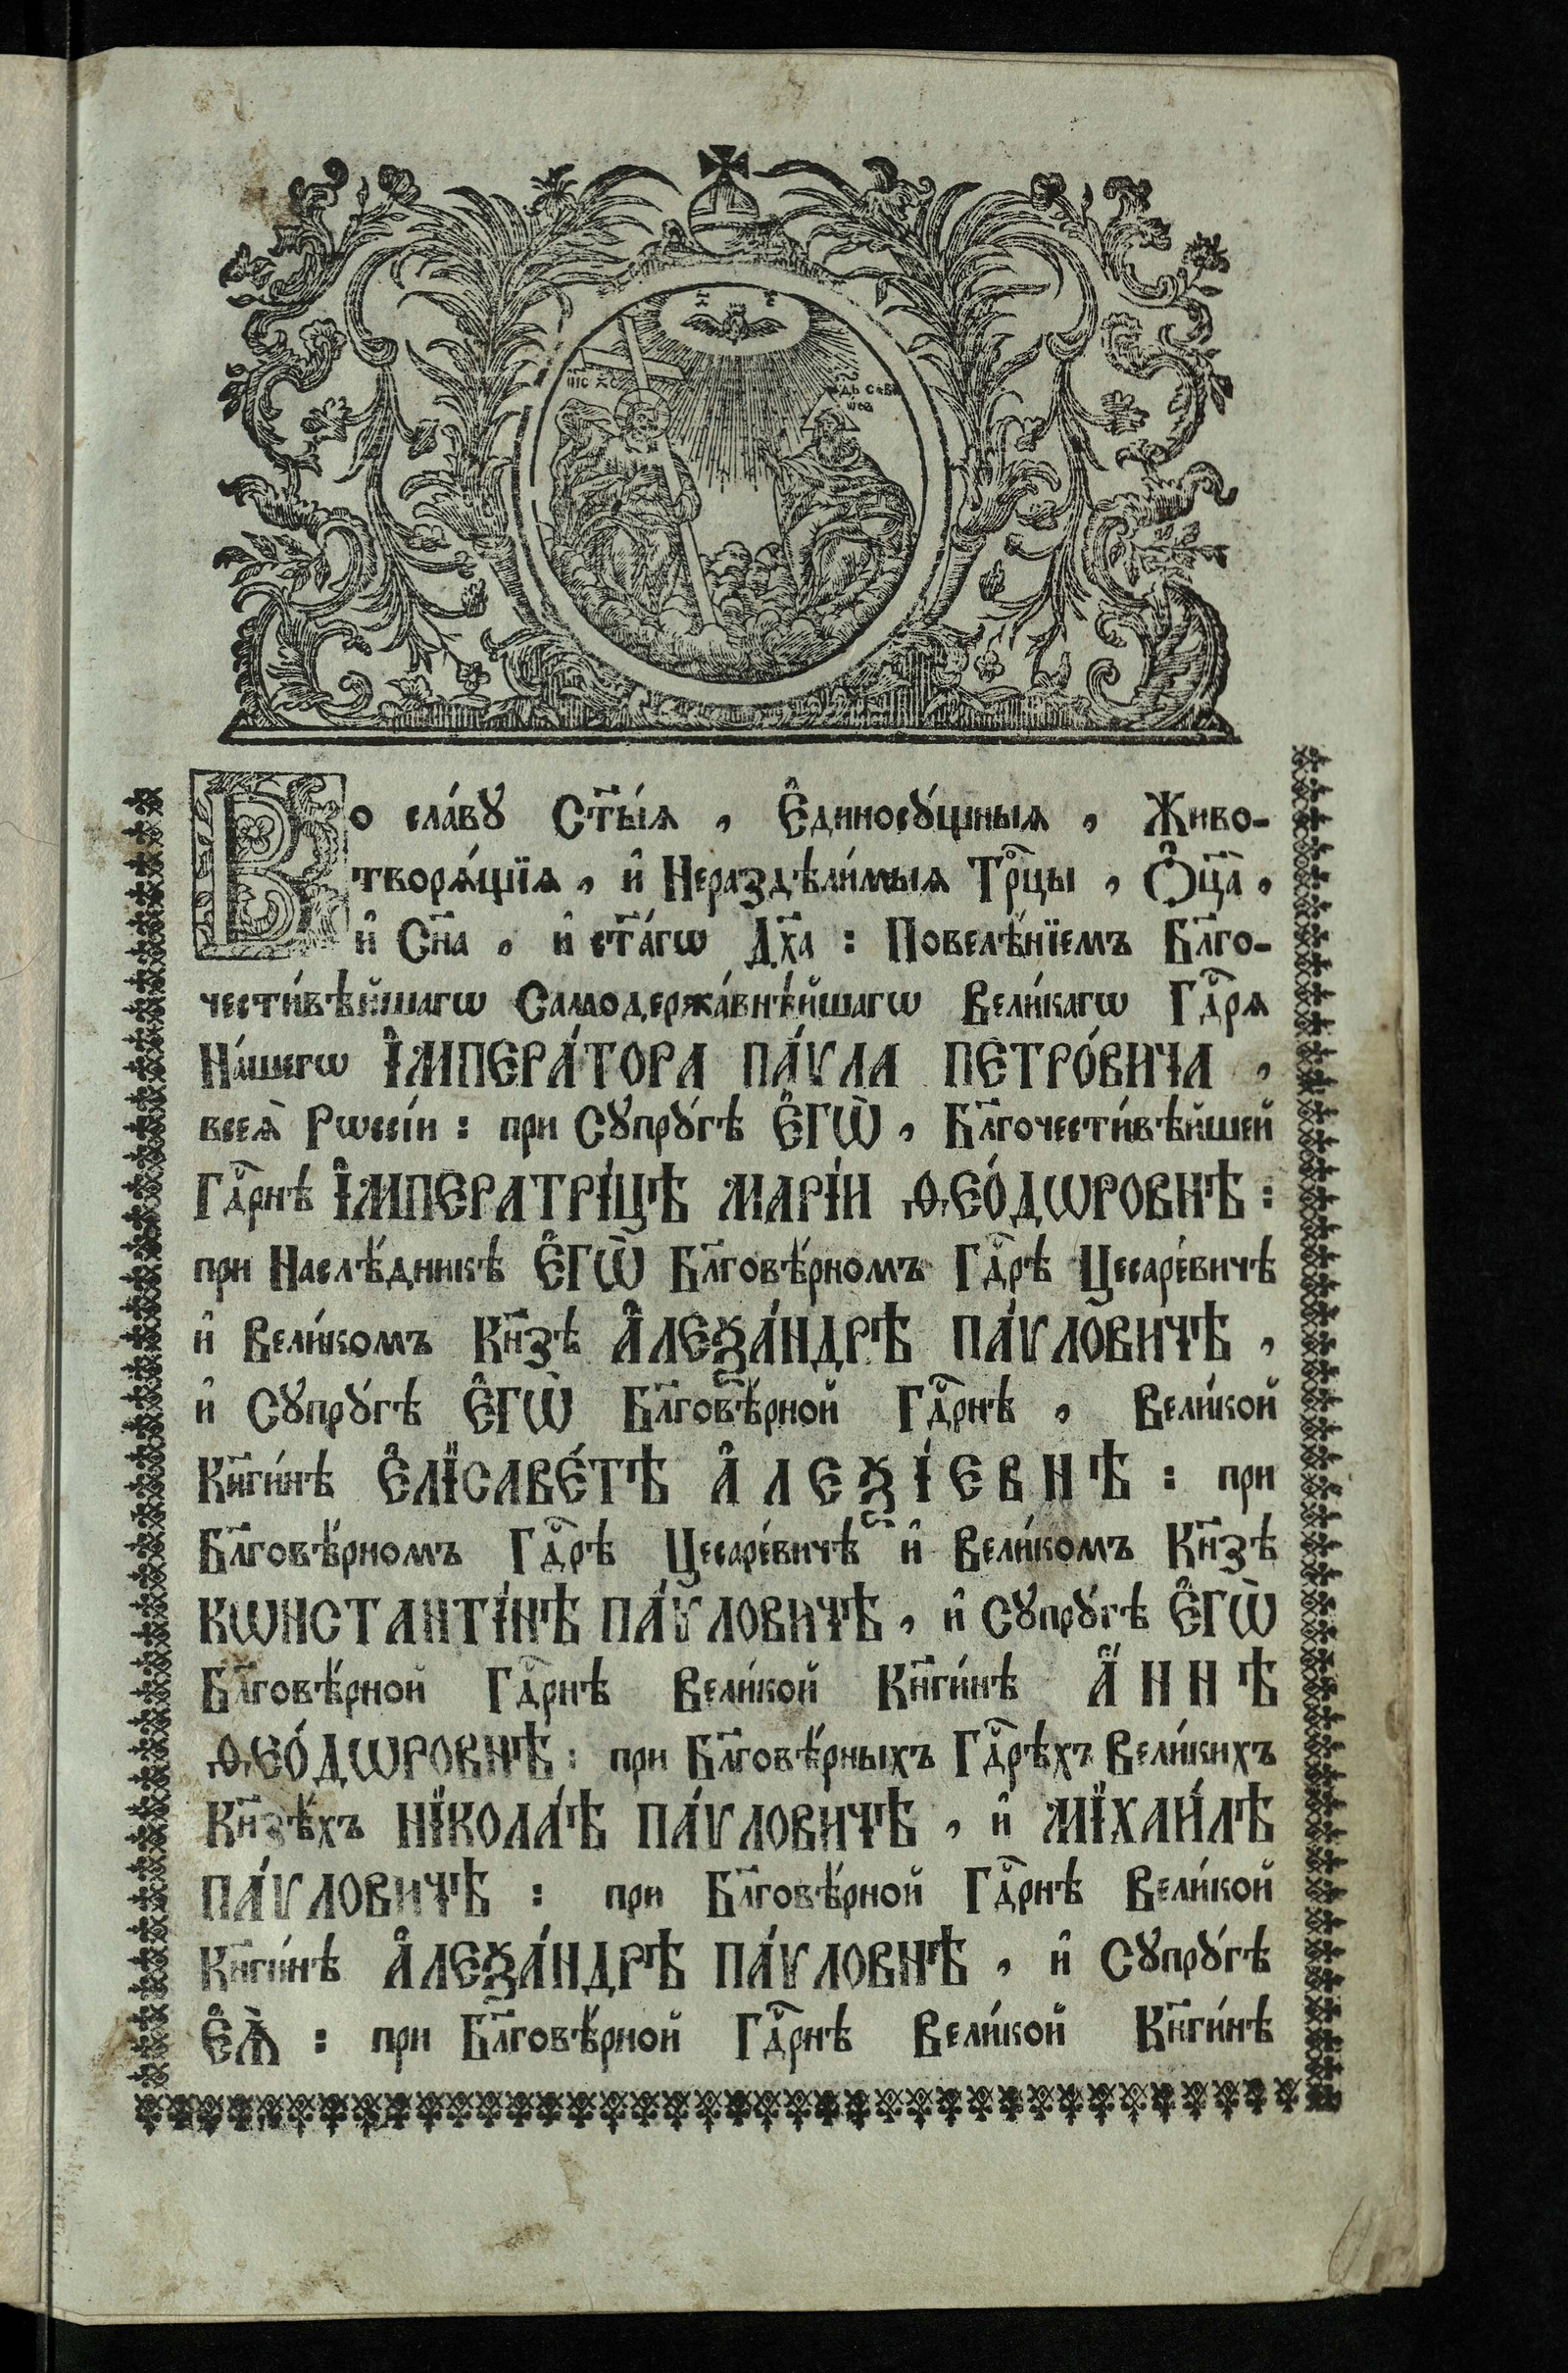 І҆И҃С Х҃С
Во сла́вꙋ Ст҃ы́ѧ , Є҆диносꙋ́щныѧ , Живо-
творѧ́щїѧ , и҆ Нераздѣли́мыѧ Трⷪ҇цы , Ѻ҆ц҃а̀ ,
и҆ Сн҃а , и҆ ст҃а́гѡ Дх҃а : Повелѣ́нїемъ Бл҃го-
чести́вѣйшагѡ Самодержа́внѣйшагѡ Вели́кагѡ Гдⷭ҇рѧ
На́шегѡ І҆МПЕРА́ТОРА ПА́ѴЛА ПЕТРО́ВИЧА ,
всеѧ̀ Рѡссі́и : при Сꙋпрꙋ́гѣ Є҆ГѠ̀ , Бл҃гочести́вѣйшей
Гдⷭ҇рнѣ І҆МПЕРАТРІ́ЦѢ МАРІ́И Ѳ҆ЕО́ДѠРОВНѢ :
при Наслѣ́дникѣ Є҆ГѠ̀ Бл҃говѣ́рномъ Гдⷭ҇рѣ Цесаре́вичѣ
и҆ Вели́комъ Кн҃зѣ А҆ЛЕѮА́НДРѢ ПА́ѴЛОВИЧѢ ,
и҆ Сꙋпрꙋ́гѣ Є҆ГѠ̀ Бл҃говѣ́рной Гдⷭ҇рнѣ , Вели́кой
Кн҃ги́нѣ Є҆ЛІСАВЕ́ТѢ А҆ЛЕѮІ́ЕВНѢ : при
Бл҃говѣ́рномъ Гдⷭ҇рѣ Цесаре́вичѣ и҆ Вели́комъ Кн҃зѣ
КѠНСТАНТІ́НѢ ПА́ѴЛОВИЧѢ , и҆ Сꙋпрꙋ́гѣ Є҆ГѠ̀
Бл҃говѣ́рной Гдⷭ҇рнѣ Вели́кой Кн҃ги́нѣ А҆́ННѢ
Ѳ҆ЕО́ДѠРОВНѢ : при Бл҃говѣ́рныхъ Гдⷭ҇рѣхъ Вели́кихъ
Кн҃зѣ́хъ НІКОЛА́Ѣ ПА́ѴЛОВИЧѢ , и҆ МІХАИ́ЛѢ
ПА́ѴЛОВИЧѢ : при Бл҃говѣ́рной Гдⷭ҇рнѣ Вели́кой
Кн҃ги́нѣ А҆ЛЕѮА́НДРѢ ПА́ѴЛОВНѢ , и҆ Сꙋпрꙋ́гѣ
Є҆Ѧ̀ : при Бл҃говѣ́рной Гдⷭ҇рнѣ Вели́кой Кн҃ги́нѣ